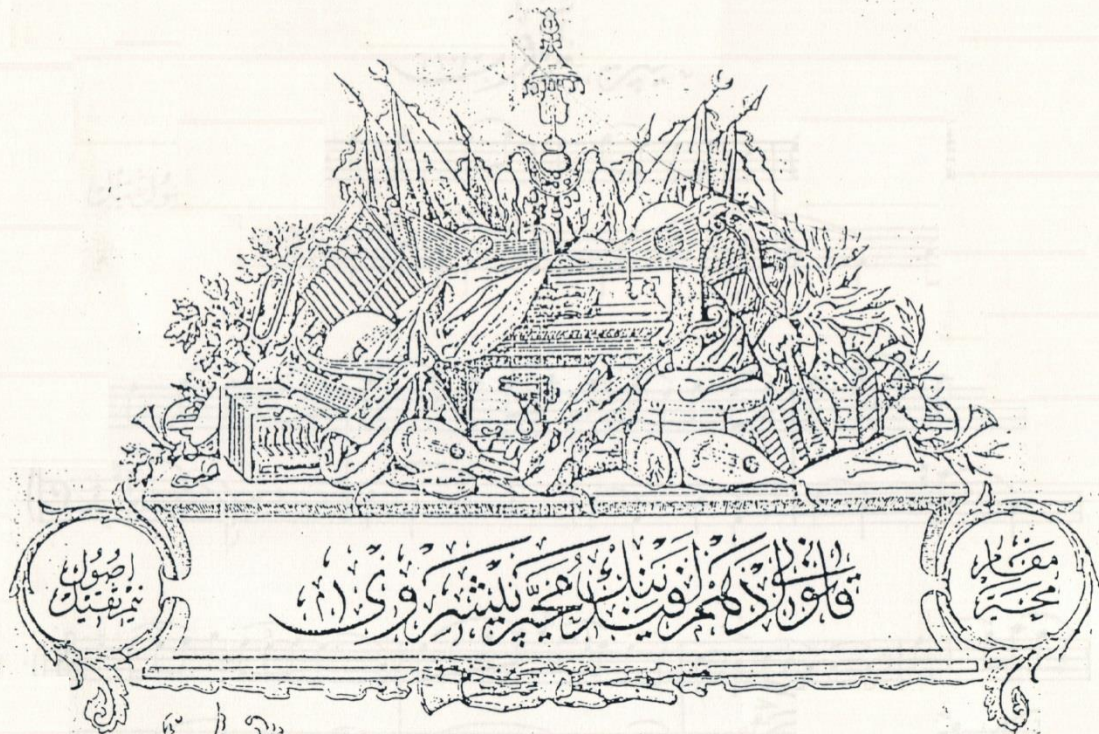 مقام
محیر
قانونی ادهم افندینك محیر پیشروی
اصول
نیم ثقیل